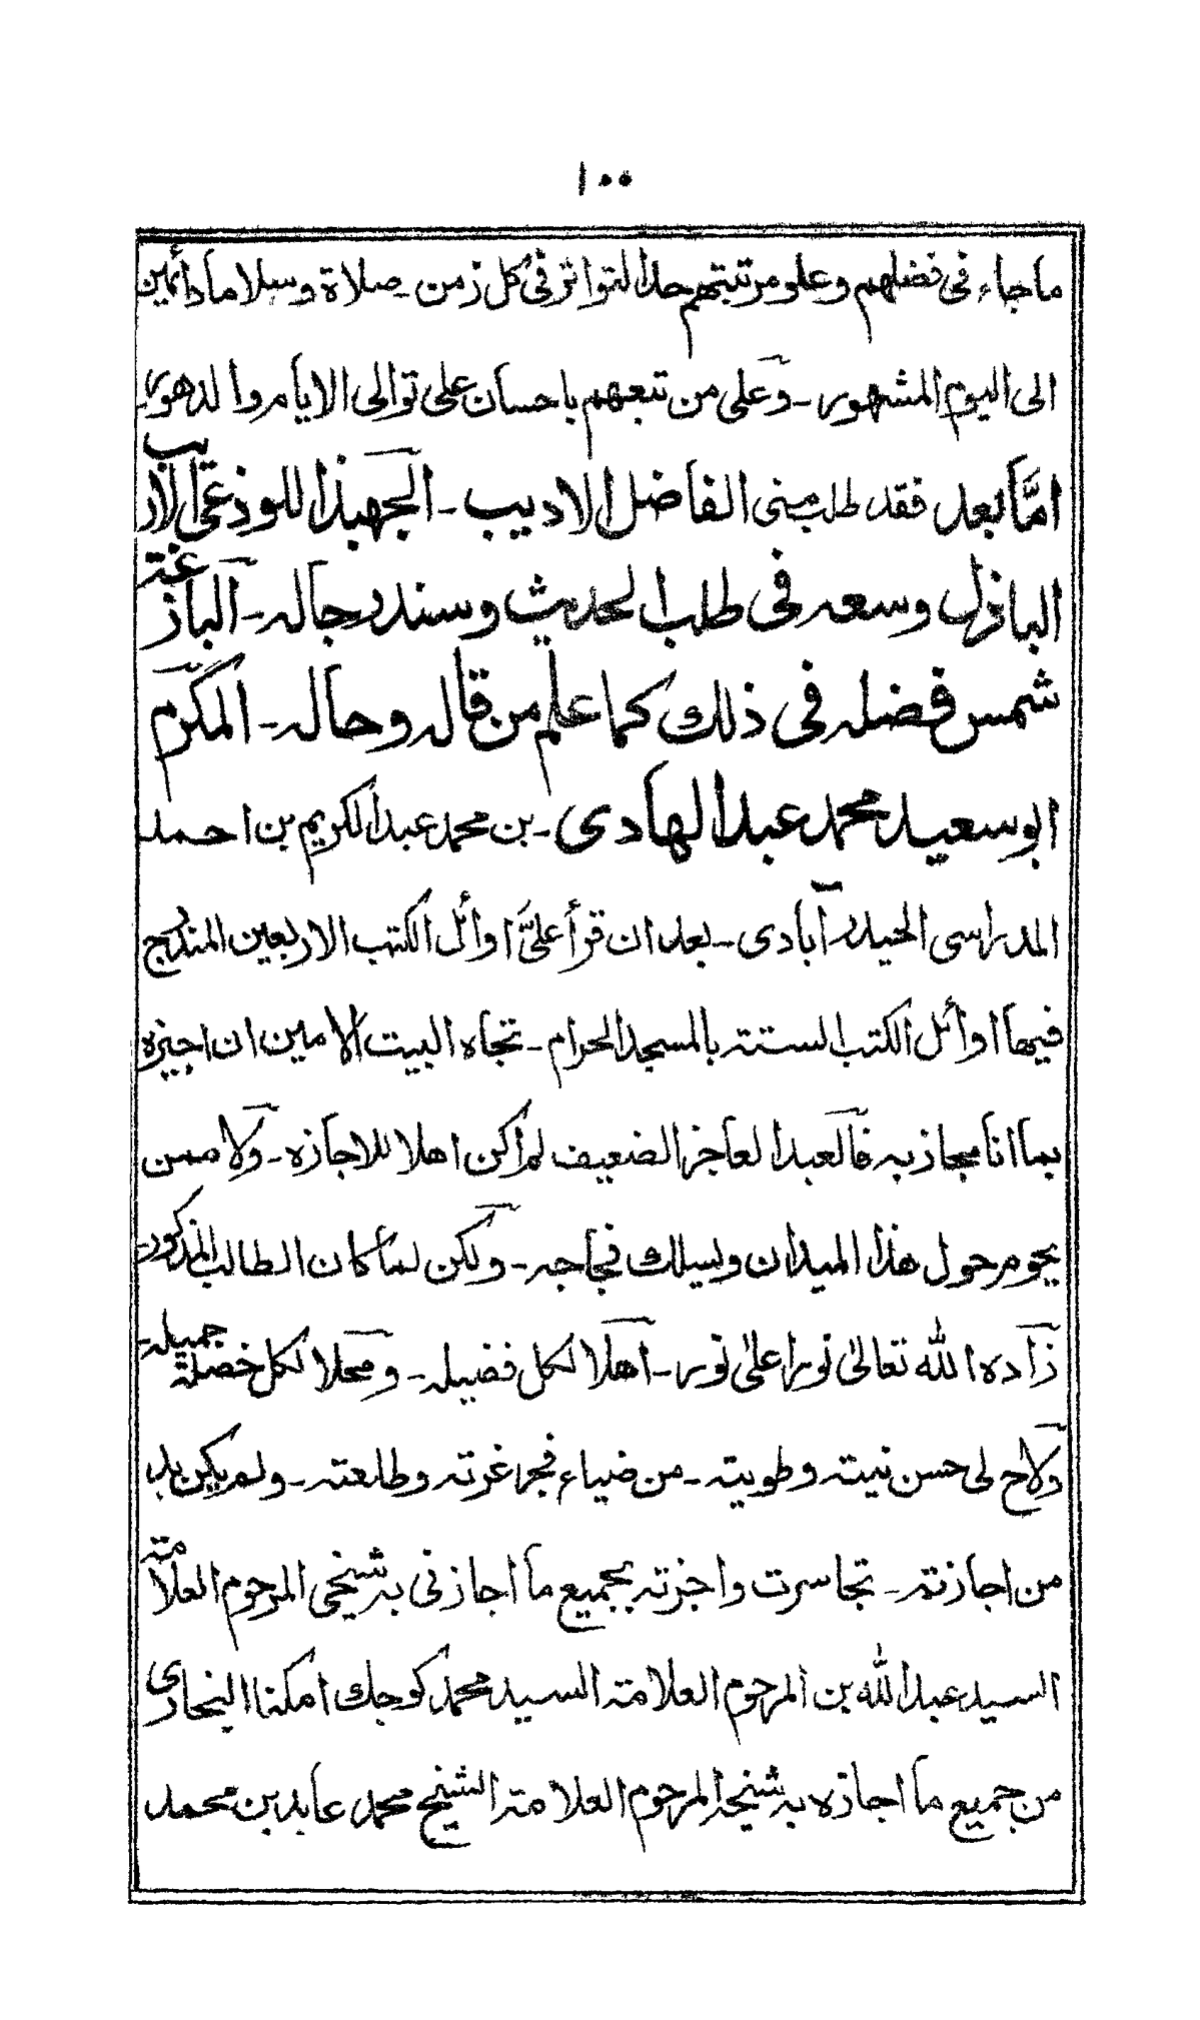 ١٠٠
ما جاء فى فضلهم وعلو مرتبتهم حد التواتر فى كل زمن ـ صلاة وسلاما دائمين
الى اليوم المشهور ـ وعلى من تبعهم باحسان على توالى الايام والدهور
امّا بعد فقد طلب منى الفاضل الاديب ـ الجهبذ اللوذعى الاريب
الباذل وسعه فى طلب الحديث وسند رجاله ـ البازغة
شمس فضله فى ذلك كما علم من قاله وحاله ـ المكرم
ابو سعيد محمد عبد الهادى ـ بن محمد عبد الكريم بن احمد
المدراسى الحيدرآبادى ـ بعد ان قرأ علىّ اوائل الكتب الاربعين المندرج
فيها اوائل الكتب الستة بالمسجد الحرام ـ تجاه البيت الامين ان اجيزه
بما انا مجاز به فالعبد العاجز الضعيف لم اكن اهلا للاجازه ـ ولا ممن
يحوم حول هذا الميدان ويسلك فجاجه ـ ولكن لما كان الطالب المذكور
زاده الله تعالىٰ نورا علىٰ نور ـ اهلا لكل فضيله ـ ومحلا لكل خصلة جميله
ولاح لى حسن نيته وطويته ـ من ضياء فجر غرته وطلعته ـ ولم يكن بد
من اجازته ـ تجاسرت واجزته بجميع ما اجازنى به شيخى المرحوم العلامة
السيد عبد الله بن المرحوم العلامة السيد محمد كوجك امكنا البخارى
من جميع ما اجازه به شيخه المرحوم العلامة الشيخ محمد عابد بن محمد